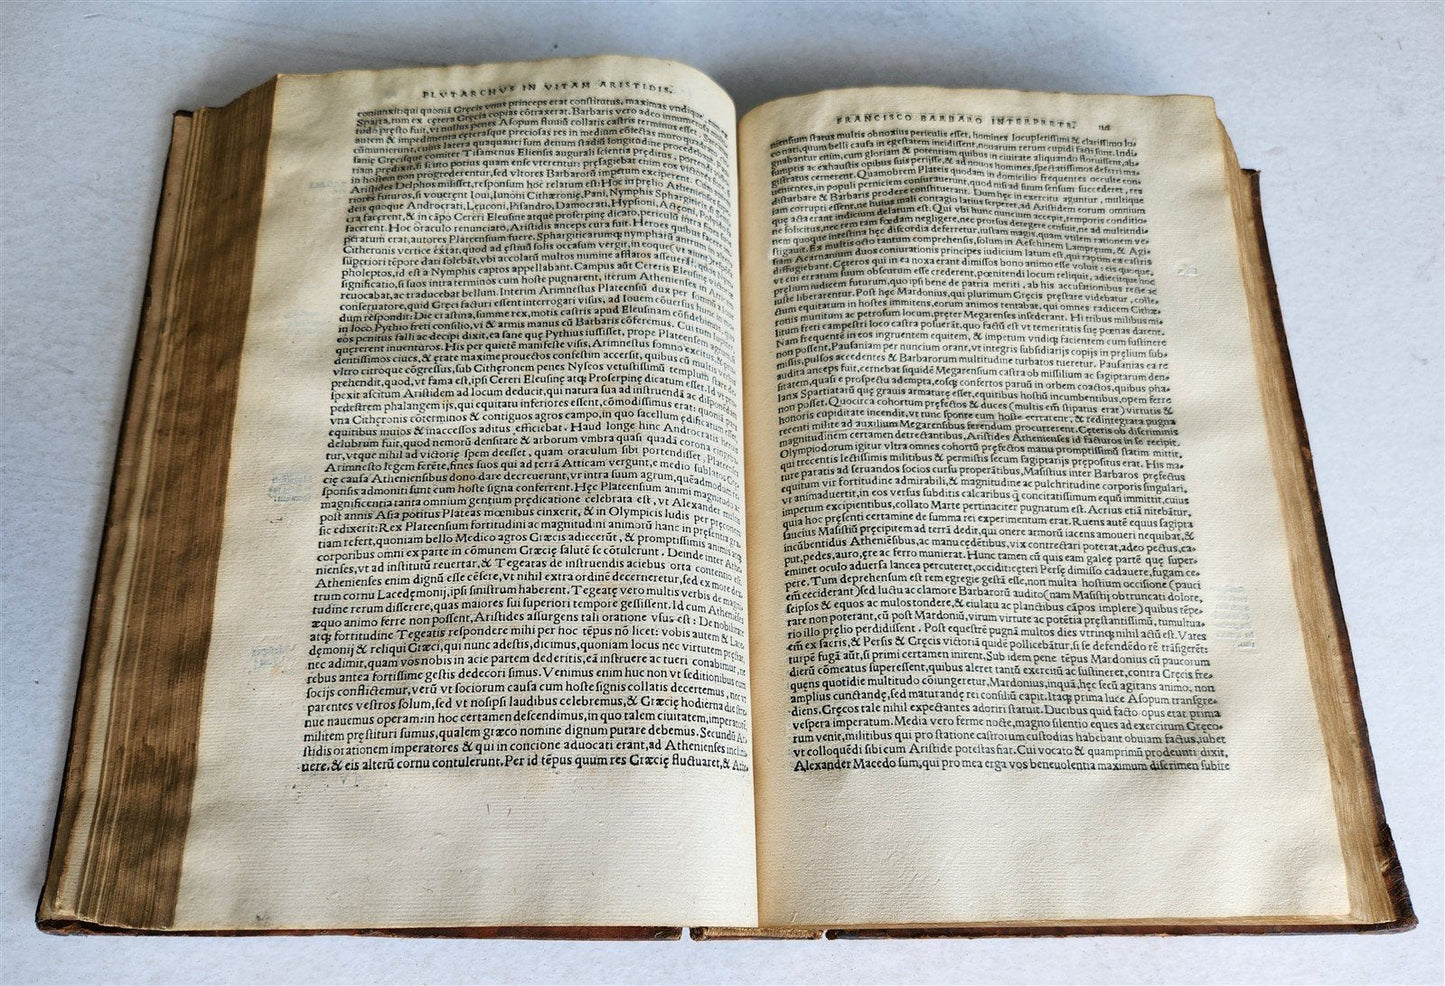 PLVTARCHVS IN VITAM ARISTIDIS.
coniunxit: qui quoniā Gręcis vnus princeps erat constitutus, maximas vndique
Sparta, tum ex cętera Gręcia copias cōtraxerat. Barbaris vero adeo innumerosa
tudo pręsto fuit, vt nullus penes Asopum fluuiū collatis castris terminus esset.
autem & impedimenta ceterasque preciosas res in medium cōiectas muro
cūmunierunt, cuius latera quaquauersum denum stadiū longitudine procedebant.
sanię Gręcisque comiter Tisamenus Eliensis augurali scientia pręditus,
riam prędixit, si scuto potius quam ense vterentur: pręsagiebat enim eos victores
in hostem non progrederentur, sed vltores Barbarorū impetum exciperent. Cum
Aristides Delphos misisset, responsum hoc relatum est: Hoc in pręlio Athenienses
riores futuros, si vouerent Ioui, Iunoni Cithæronię, Pani, Nymphis Sphargiticis
deis quoque Androcrati, Leuconi, Pisandro, Damocrati, Hypsioni, Actęoni, Polyido
cra facerent, & in cāpo Cereri Eleusinę atque proserpinę dicato, periculū
facerent. Hoc oraculo renunciato, Aristidis anceps cura fuit. Heroes quibus facere
peratum erat, autores Plateensium fuere. Sphargiticarumq; nympharū antrum
Citheronis vertice extat, quod ad ęstiuū solis occasum vergit, in eoque
superiori tēpore dari solebāt, vbi accolarū multos numine afflatos asseuerāt
pholeptos, id est a Nymphis captos appellabant. Campus aūt Cereris Eleusinę
significatio, si suos intra terminos cum hoste pugnarent, iterum Athenienses in Atticam
reuocabat, ac traducebat bellum. Interim Arimnestus Plateensiū dux per somnū
conseruatore, quid Gręci facturi essent interrogari visus, ad Iouem cōuersus
dum respōdit: Die crastina, summe rex, motis castris apud Eleusinam cōsidebimus
in loco Pythio freti consilio, vi & armis manus cū Barbaris cōseremus. Cui tum
eos penitus falli ac decipi dixit, ea sane quę Pythius iussisset, prope Plateensem
quęrerent inuenturos. His per quietē manifeste visis, Arimnestus somno excitus,
dentissimos ciues, & ętate maxime prouectos confestim accersit, quibus cū multis
vltro citroque cōgressus, sub Cithęronem penes Nyseos vetustissimū templum
prehendit, quod, vt fama est, ipsi Cereri Eleusinę atq; Proserpinę dicatum esset. Id vt
spexit ascitum Aristidem ad locum deducit, qui natura sua ad instruendā ac disponendam
pedestrem phalangem ijs, qui equitatu inferiores essent, cōmodissimus erat: quoniā
vna Cithęronis cōterminos & contiguos agros campo, in quo sacellum ędificatum
equitibus inuios & inaccessos aditus efficiebat. Haud longe hinc Androcratis
delubrum fuit, quod nemorū densitate & arborum vmbra quasi quadā corona
tur, vtque nihil ad victorię spem deesset, quam oraculum sibi portendisset, Plateenses
Arimnesto legem ferēte, fines suos qui ad terrā Atticam vergunt, e medio sublatos
cię causa Atheniensibus dono dare decreuerunt, vt intra suum agrum, quēadmodum
sponsis admoniti sunt cum hoste signa conferrent. Hęc Plateensium animi magnitudo
magnificentia tanta omnium gentium prędicatione celebrata est, vt Alexander multos
post annis Asia potitus Plateas mœnibus cinxerit, & in Olympicis ludis per pręconem
sic edixerit: Rex Plateensium fortitudini ac magnitudini animorū hanc in pręsentia gratiam
tiam refert, quoniam bello Medico agros Græcis adiecerūt, & promptissimis animis atque
corporibus omni ex parte in cōmunem Græcię salutē se cōtulerunt. Deinde inter Athe
nienses, vt ad institutū reuertar, & Tegeatas de instruendis aciebus orta contentio est.
Athenienses enim dignū esse cēsere, vt nihil extra ordinē decerneretur, sed ex more dex
trum cornu Lacedęmonij, ipsi sinistrum haberent. Tegeatę vero multis verbis de magni
tudine rerum disserere, quas maiores sui superiori tempore gessissent. Id cum Athenienses
æquo animo ferre non possent, Aristides assurgens tali oratione vsus est: De nobilitate
atq; fortitudine Tegeatis respondere mihi per hoc tēpus nō licet: vobis autem & Lace
dęmonij & reliqui Græci, qui nunc adestis, dicimus, quoniam locus nec virtutem pręstat,
nec adimit, quam vos nobis in acie partem dederitis, eā instruere ac tueri conabimur, ne
rebus antea fortissime gestis dedecori simus. Venimus enim huc non vt seditionibus cum
socijs conflictemur, verū vt sociorum causa cum hoste signis collatis decertemus, nec vt
parentes vestros solum, sed vt nosipsi laudibus celebremus, & Græcię hodierna die stre
nue nauemus operam: in hoc certamen descendimus, in quo talem ciuitatem, imperatorē,
militem pręstituri sumus, qualem græco nomine dignum putare debemus. Secundū Ari
stidis orationem imperatores & qui in concione aduocati erant, ad Athenienses inclina
uere, & eis alterū cornu contulerunt. Per id tēpus quum res Græcię fluctuaret, & Athe
FRANCISCO BARBARO INTERPRETE.
niensium status multis obnoxius periculis esset, homines locupletissimi & clarissimo lo
co nati, quum belli causa in egestatem incidissent, nouarum rerum cupidi facti sunt. Indi
gnabantur enim, cum gloriam & potentiam quibus in ciuitate aliquando floruissent, ab
sumptis ac exhaustis opibus suis perijsse, & ad nouos homines, spectatissimos deferri ma
gistratus cernerent. Quamobrem Plateis quodam in domicilio frequentes occulte con
uenientes, in populi perniciem coniurauerunt, quod nisi ad suum sensum succederet, res
disturbare & Barbaris prodere constituerant. Dum hęc in exercitu aguntur, multique
iam corrupti essent, ne huius mali contagio latius serperet, ad Aristidem eorum omnium
quę acta erant indicium delatum est. Qui vbi hunc nuncium accepit, temporis conditio
ne solicitus, nec rem tam fœdam negligere, nec prorsus detegere censuit, ne ad multitudi
nem quoque intestina hęc discordia deferretur, iustam magis, quam vtilem rationem ve
stigauit. Ex multis octo tantum comprehensis, solum in Aeschinem Lampreum, & Agi
siam Acarnanium duos coniurationis principes iudicium latum est, qui raptim ex castris
diffugiebant. Ceteros qui in ea noxa erant dimissos bono animo esse voluit: eis quoque,
vt cui erratum suum obscurum esse crederent, pœnitendi locum reliquit, adiecitque hoc
pręlium iudicem futurum, quo ipsi bene de patria meriti, ab his accusationibus recte ac
iuste liberarentur. Post hęc Mardonius, qui plurimum Gręcis pręstare videbatur, coste
cum equitatum in hostes immitens, eorum animos tentabat, qui omnes radicem Cithæ
ronis munitum ac petrosum locum, pręter Megarenses insederant. Hi tribus milibus mi
litum freti campestri loco castra posuerāt, quo factū est vt temeritatis suę pœnas darent.
Nam frequentē in eos ingruentem equitem, & impetum vndiq; facientem cum sustinere
non possent, Pausaniam per nuncium orant, vt integris subsidiarijs copijs in pręlium sub
missis, pulsos accedentes & Barbarorum multitudine turbatos tueretur. Pausanias ea re
audita anceps fuit, cernebat siquidē Megarensium castra ob missilium ac sagiptarum den
sitatem, quasi e prospectu adempta, eosq; confertos paruū in orbem coactos, quibus pha
lanx Spartiatarū quę grauis armaturę esset, equitibus hostiū incumbentibus, opem ferre
non posset. Quocirca cohortum pręfectos & duces (multis em̄ stipatus erat) virtutis &
honoris cupiditate incendit, vt tunc sponte cum hoste certarent, & redintegrata pugna
recenti milite ad auxilium Megarensibus ferendum procurrerent. Ceteris ob discriminis
magnitudinem certamen detrectantibus, Aristides Athenienses id facturos in se recipit.
Olympiodorum igitur vltra omnes cohortū pręfectos manu promptissimū statim mittit,
qui trecentis lectissimis militibus & permistis secum sagiptarijs prępositus erat. His ma
ture paratis ad seruandos socios cursu properātibus, Masistius inter Barbaros pręfectus
equitum vir fortitudine admirabili, & magnitudine ac pulchritudine corporis singulari,
vt animaduertit, in eos versus subditis calcaribus q̄ concitatissimum equū immittit, cuius
impetum excipientibus, collato Marte pertinaciter pugnatum est. Acrius etiā nitebātur,
quia hoc pręsenti certamine de summa rei experimentum erat. Ruens autē equus sagipta
saucius Masistiū pręcipitem ad terrā dedit, qui onere armorū iacens amoueri nequibat, &
incūbentidus Atheniēsibus, ac manu cędētibus, vix contrectari poterat, adeo pectus, ca
put, pedes, auro, ęre ac ferro munierat. Hunc tamen cū quis eam galeę partē quę super
eminet oculo aduersa lancea percuteret, occidit: cęteri Persę dimisso cadauere, fugam ce
pere. Tum deprehensum est rem egregie gestā esse, non multa hostium occisione (pauci
em̄ ceciderant) sed luctu ac clamore Barbarorū audito (nam Masistij obtruncati dolore,
seipsos & equos ac mulos tondere, & eiulatu ac planctibus cāpos implere) quibus tēpe
rare non poterant, cū post Mardoniū, virum virtute ac potētia pręstantissimū, tumultua
rio illo pręlio perdidissent. Post equestrē pugnā multos dies vtrinq; nihil actū est. Vates
em̄ ex sacris, & Persis & Gręcis victoriā quidē pollicēbātur, si se defendēdo rē trāsigerēt:
turpē fugā aūt, si primi certamen inirent. Sub idem pene tēpus Mardonius cū paucorum
dierū cōmeatus superessent, quibus aleret tantū exercitū ac sustineret, contra Gręcis fre
quens quotidie multitudo cōiungeretur, Mardonius, inquā, hęc secū agitans animo, non
amplius cunctandę, sed maturandę rei consiliū capit. Itaq; prima luce Asopum transgre
diens, Gręcos tale nihil expectantes adoriri statuit. Ducibus quid facto opus erat prima
vespera imperatum. Media vero ferme nocte, magno silentio eques ad exercitum Gręco
rum venit, militibus qui pro statione castrorum custodias habebant obuiam factus, iubet
vt colloquēdi sibi cum Aristide potestas fiat. Cui vocato & quamprimū prodeunti dixit,
Alexander Macedo sum, qui pro mea erga vos beneuolentia maximum discrimen subire